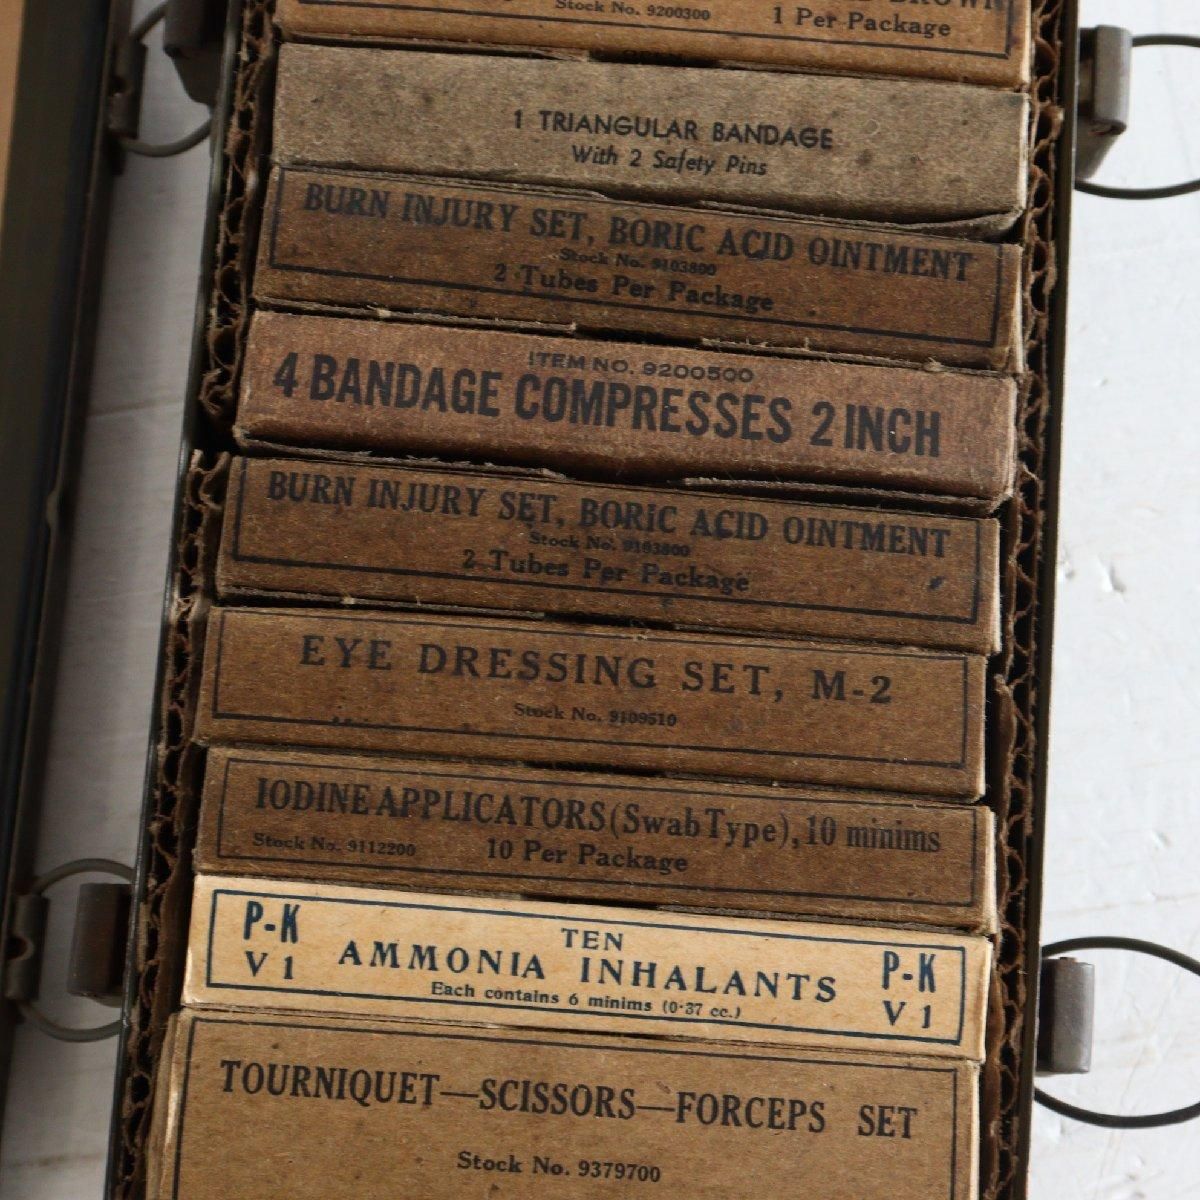 BROWN
Stock No. 9200300
1 Per Package
1 TRIANGULAR BANDAGE
With 2 Safety Pins
BURN INJURY SET, BORIC ACID OINTMENT
Stock No. 9103800
2 Tubes Per Package
ITEM NO. 9200500
4 BANDAGE COMPRESSES 2 INCH
BURN INJURY SET, BORIC ACID OINTMENT
Stock No. 9103800
2 Tubes Per Package
EYE DRESSING SET, M-2
Stock No. 9109510
IODINE APPLICATORS (Swab Type), 10 minims
Stock No. 9112200 10 Per Package
P-K TEN P-K
V 1 AMMONIA INHALANTS V 1
Each contains 6 minims (0·37 cc.)
TOURNIQUET—SCISSORS—FORCEPS SET
Stock No. 9379700